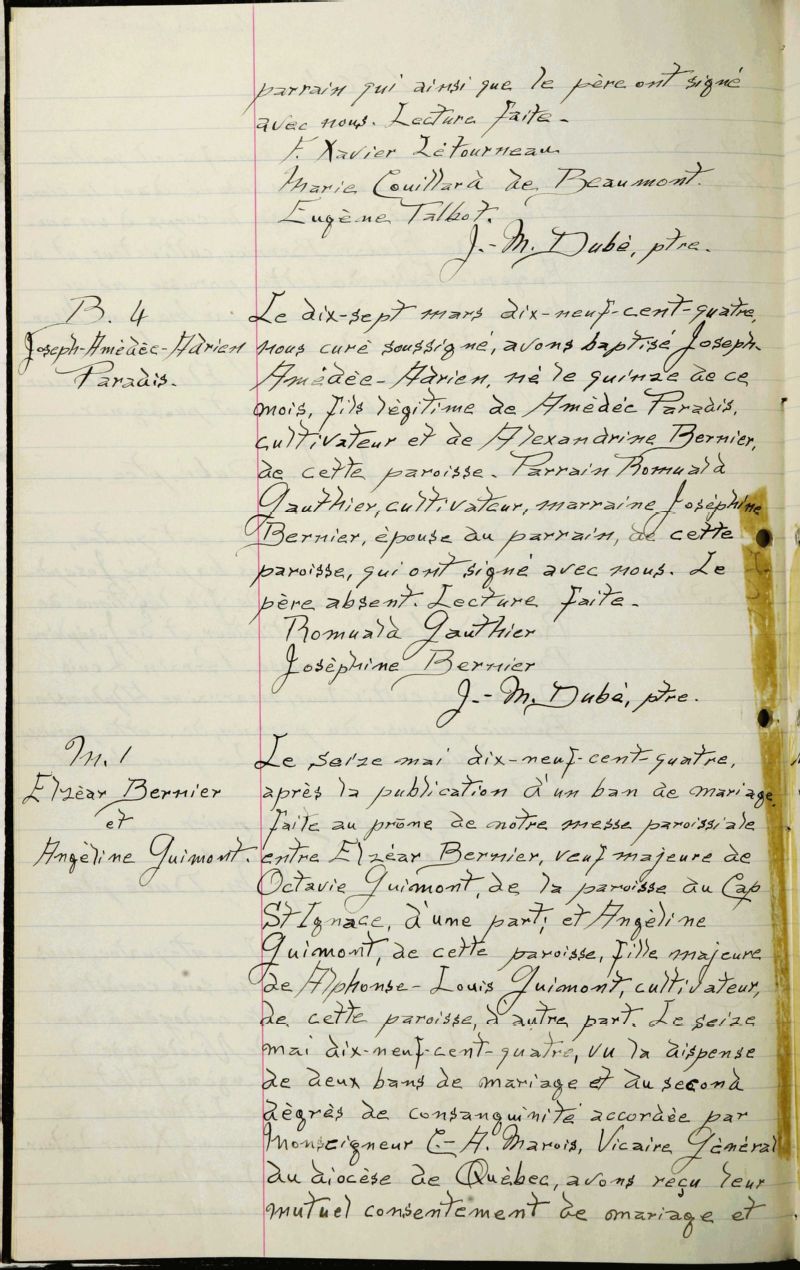 parrain qui ainsi que le père ont signé
avec nous. Lecture faite.
F. Xavier Létourneau
Marie Couillard de Beaumont.
Eugène Talbot.
J.-M. Dubé, ptre.
B. 4
Joseph-Amédée-Adrien
Paradis.
Le dix-sept mars dix-neuf-cent-quatre,
nous curé soussigné, avons baptisé Joseph-
Amédée-Adrien, né le quinze de ce
mois, fils légitime de Amédée Paradis,
cultivateur et de Alexandrine Bernier,
de cette paroisse. Parrain Romuald
Gauthier, cultivateur, marraine Joséphine
Bernier, épouse du parrain, de cette
paroisse, qui ont signé avec nous. Le
père absent. Lecture faite.
Romuald Gauthier
Joséphine Bernier
J.-M. Dubé, ptre.
M. 1
Elzéar Bernier
et
Angéline Guimont.
Le seize mai dix-neuf-cent-quatre,
après la publication d'un ban de mariage
faite au prône de notre messe paroissiale
entre Elzéar Bernier, veuf majeure de
Octavie Guimont, de la paroisse du Cap
St Ignace, d'une part; et Angéline
Guimont, de cette paroisse, fille majeure
de Alphonse-Louis Guimont, cultivateur,
de cette paroisse, d'autre part. Le seize
mai dix-neuf-cent-quatre, vu la dispense
de deux bans de mariage et du second
dègrès de consanguinité accordée par
Monseigneur C.-A. Marois, Vicaire Général
du diocèse de Québec, avons reçu leur
mutuel consentement de mariage et